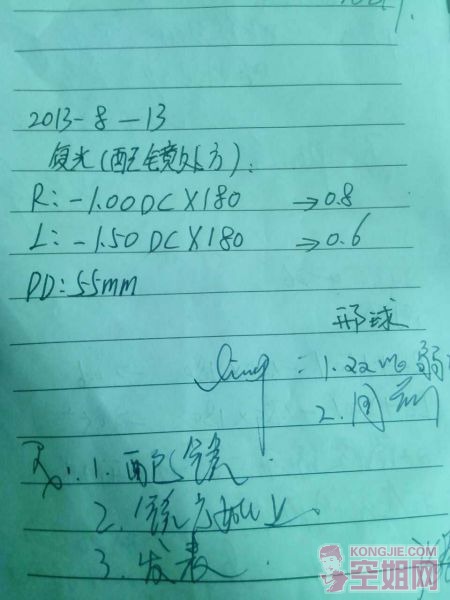 2013-8-13
复光(配镜处方):
R: -1.00DC×180 →0.8
L: -1.50DC×180 →0.6
PD: 55mm
邢球
: 1. 弱
2. 同前
Rx: 1. 配镜
2. 镜方如上
3. 发表
KONGJIE.COM
空姐网